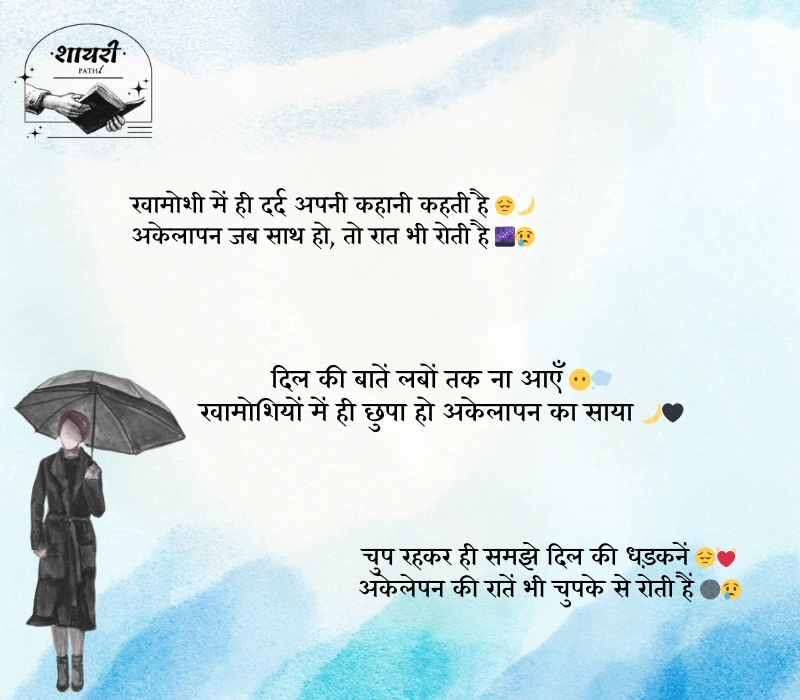 शायरी
PATH
ख़ामोशी में ही दर्द अपनी कहानी कहती है 😔🌙
अकेलापन जब साथ हो, तो रात भी रोती है 🌌😢
दिल की बातें लबों तक ना आएँ 😶💭
ख़ामोशियों में ही छुपा हो अकेलापन का साया 🌙🖤
चुप रहकर ही समझे दिल की धड़कनें 😔❤️
अकेलेपन की रातें भी चुपके से रोती हैं 🌑😢